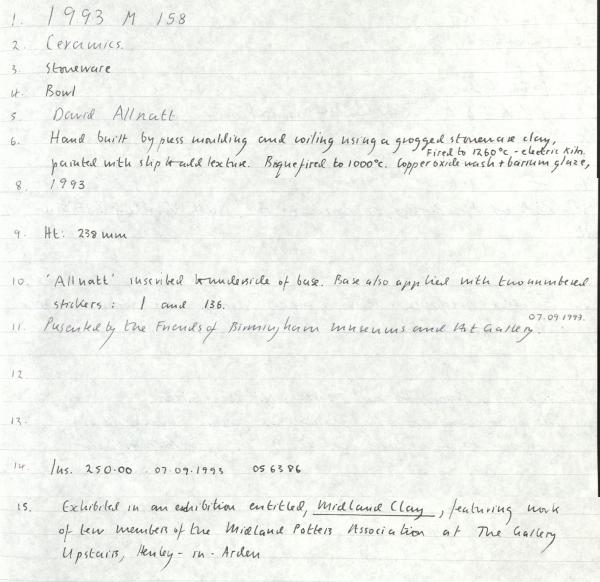 1. 1993 M 158
2. Ceramics.
3. Stoneware
4. Bowl
5 David Allnatt
6. Hand built by press moulding and coiling using a grogged stoneware clay,
Fired to 1260°c - electric kiln.
painted with slip to add texture. Bisque fired to 1000°c. Copper oxide wash + barium glaze,
8. 1993
9. Ht: 238 mm
10. 'Allnatt' inscribed to underside of base. Base also applied with two numbered
stickers: 1 and 136.
07.09.1993.
11. Presented by the Friends of Birmingham Museums and Art Gallery.
12.
13.
14. Ins. 250.00 07.09.1993 056386
15. Exhibited in an exhibition entitled, Midland Clay, featuring work
of ten members of the Midland Potters Association at The Gallery
Upstairs, Henley-in-Arden